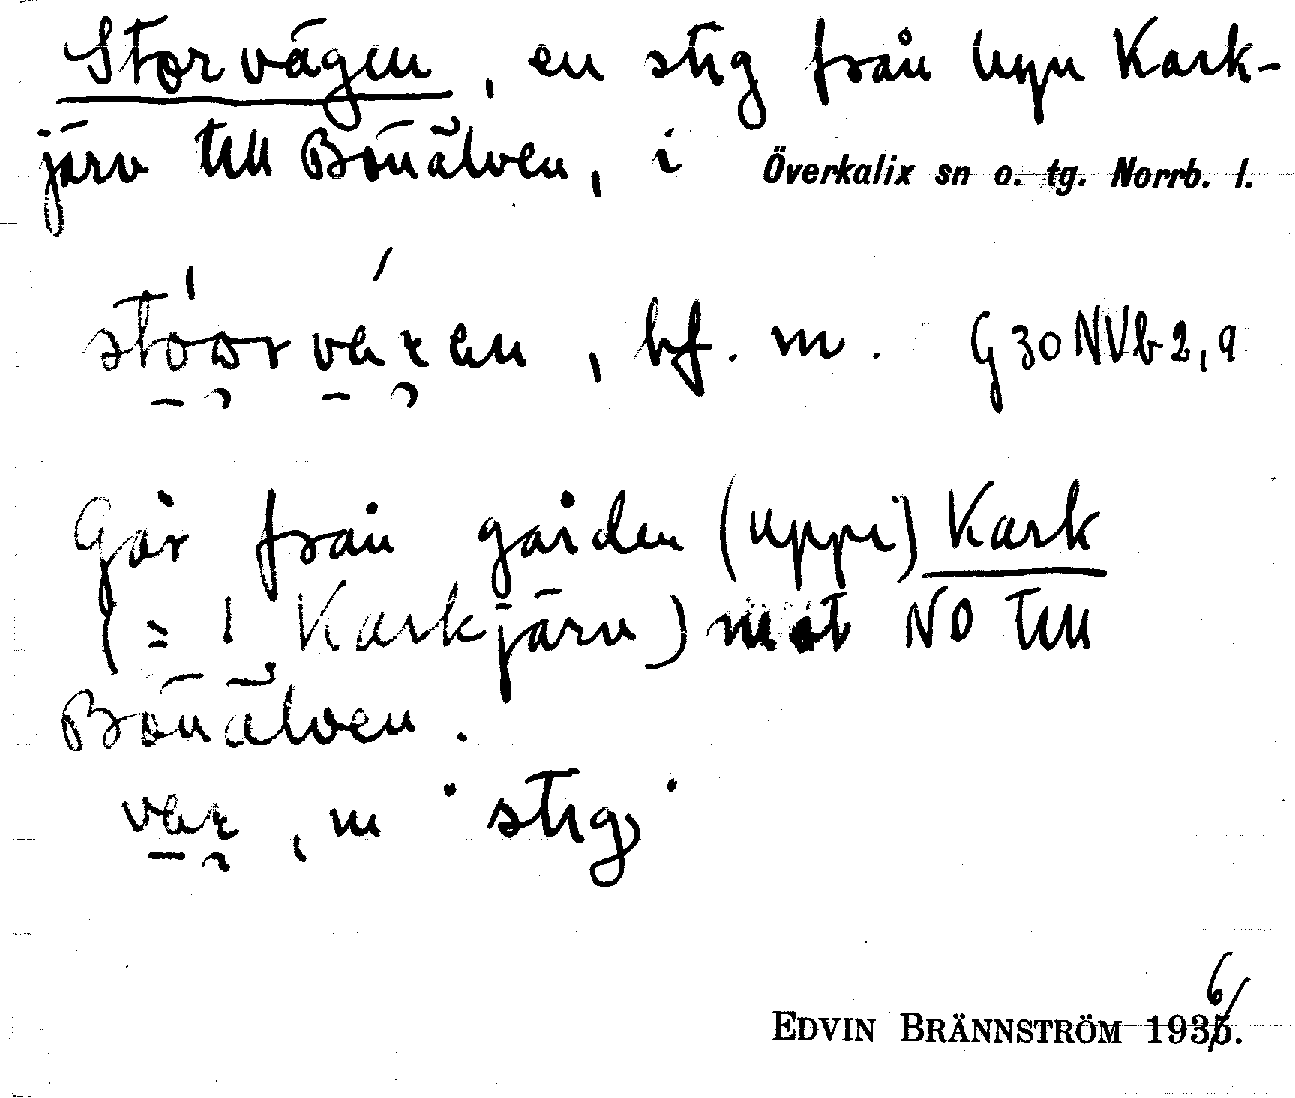 Storvägen, en stig från byn Kark-
järv till Bönälven, i Överkalix sn o. tg. Norrb. l.
stóorvaɤen, bf. m. G30NVb2,9
Går från gården (uppi) Kark
(= 1 Karkjärv) mot NO till
Bönälven.
vaɤ, m "stig"
EDVIN BRÄNNSTRÖM 1936.